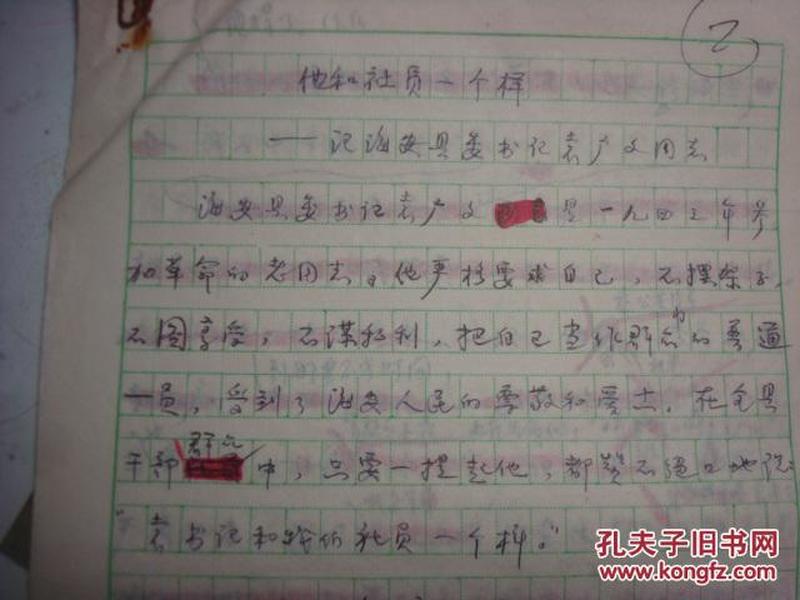 2
他和社员一个样
——记海安县委书记袁广文同志
海安县委书记袁广文是一九四三年参
加革命的老同志。他严格要求自己，不摆架子，
不图享受，不谋私利，把自己当作群众中的普通
一员，受到了海安人民的尊敬和爱戴。在全县
干部群众中，只要一提起他，都赞不绝口地说：
“袁书记和我们社员一个样。”
孔夫子旧书网
www.kongfz.com